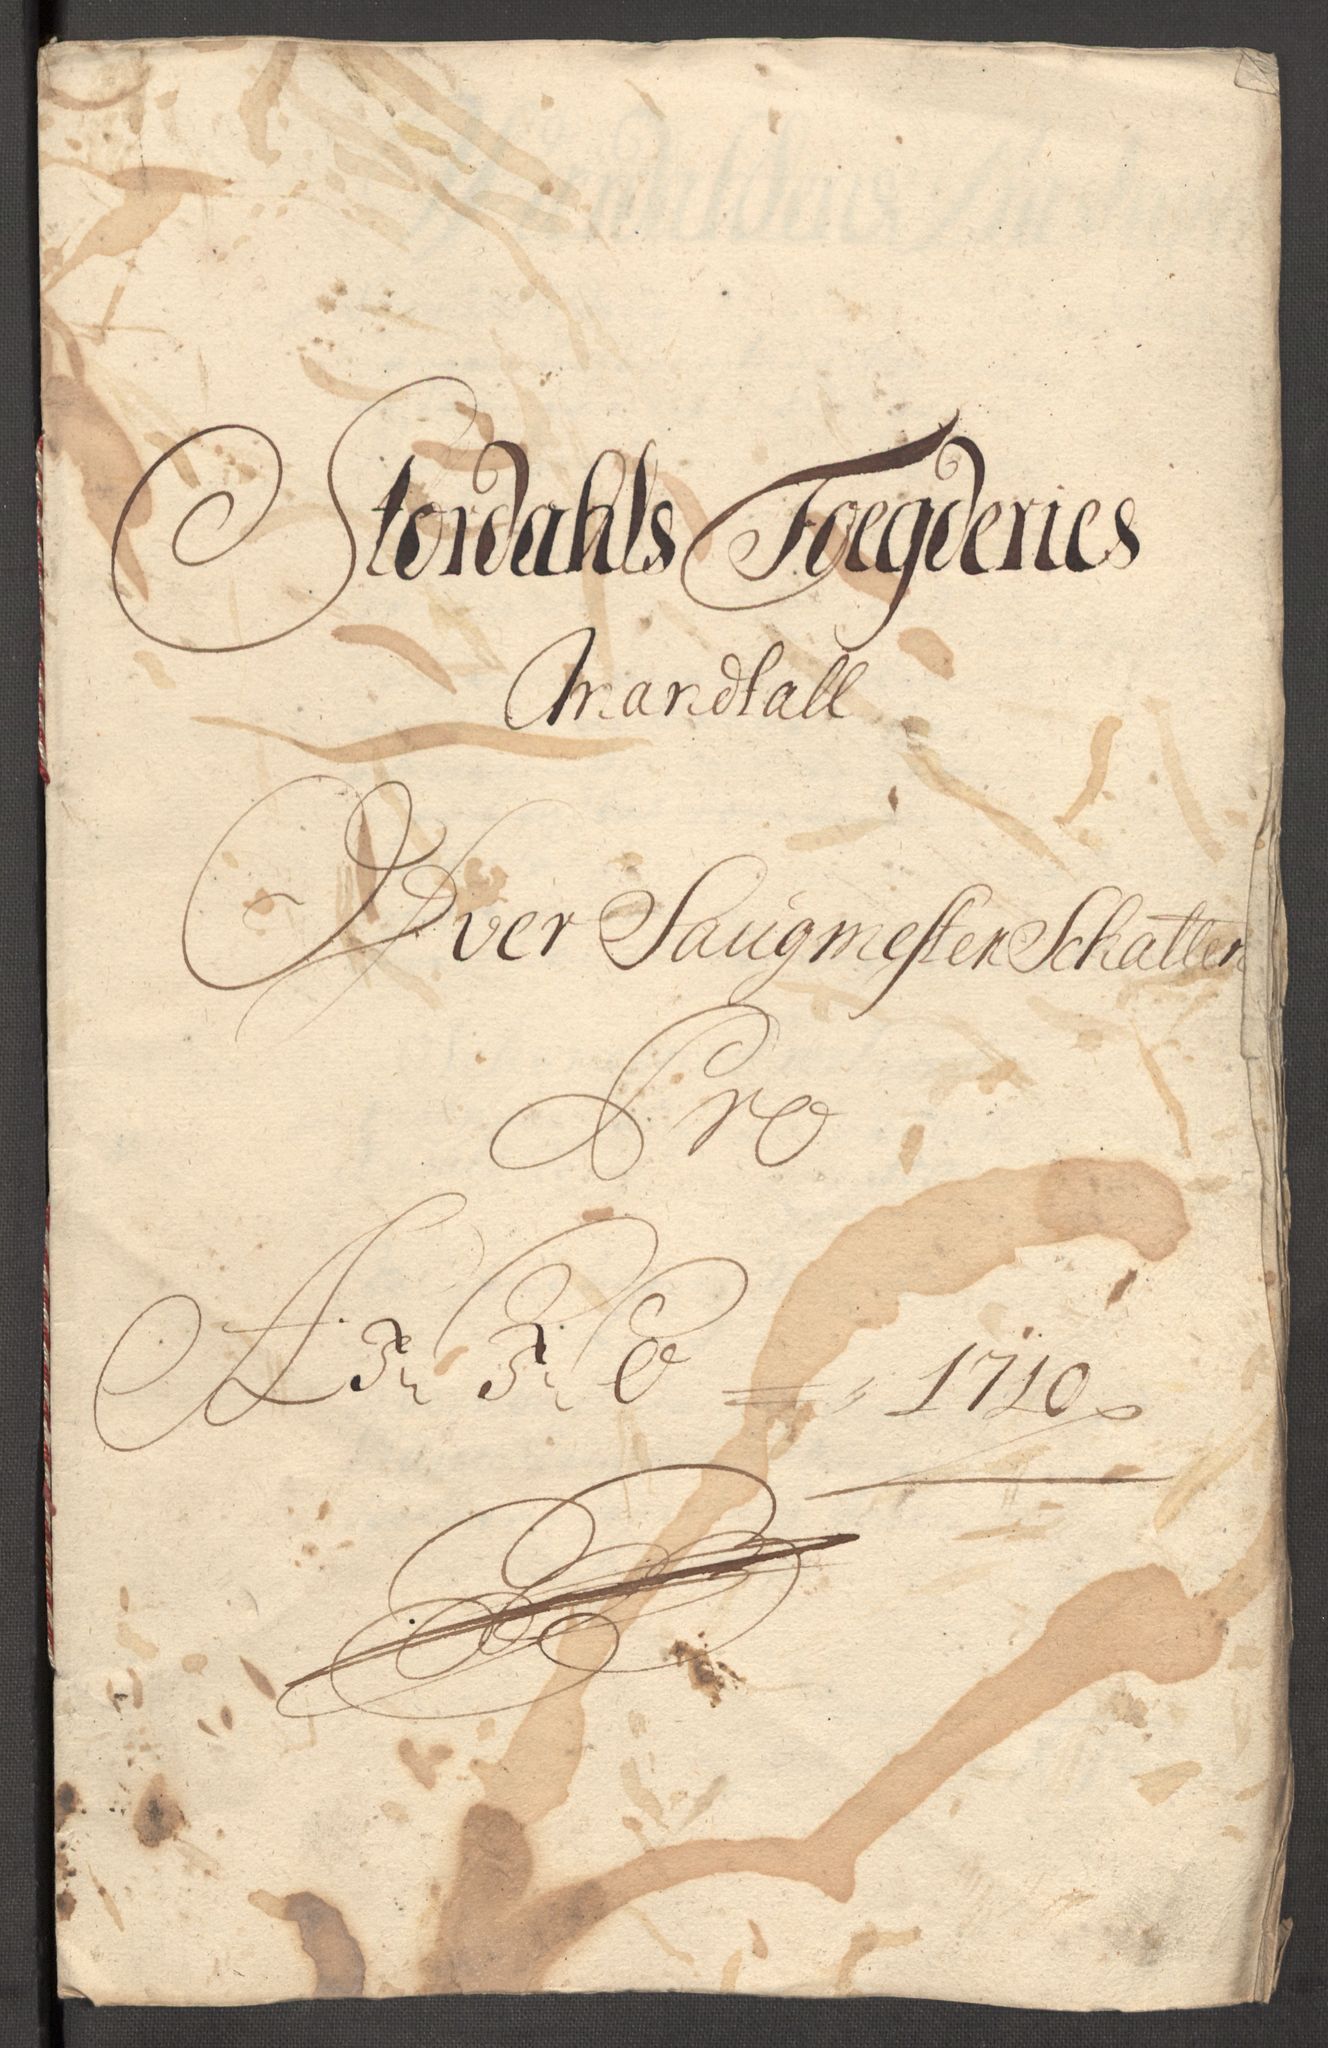 Stordahls Foegderies
Mandtall
Ofver Saugmester Schatten
Pro
ANNO 1710